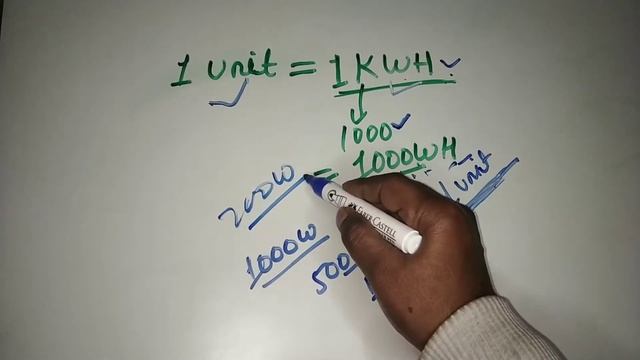 1 unit = 1KWH
1000
= 1000WH
200W
1 unit
1000W
500
FABER CASTELL